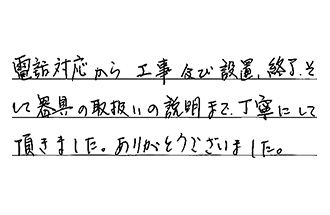 電話対応から 工事 及び 設置、終了、そ
して器具の取扱いの説明まで、丁寧にして
頂きました。ありがとうございました。